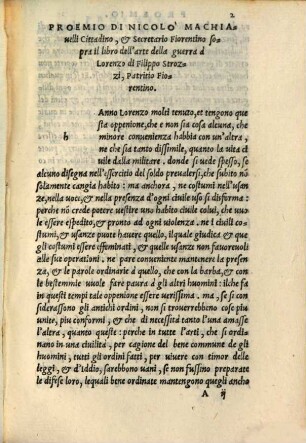 2
PROEMIO DI NICOLO' MACHIA-
uelli Cittadino, & Secretario Fiorentino so-
pra il libro dell'arte della guerra à
Lorenzo di Filippo Stroz-
zi, Patritio Fio-
rentino.
h
Anno Lorenzo molti tenuto, et tengono que
sta oppenione, che e non sia cosa alcuna, che
minore conuenienza habbia con un'altra,
ne che sia tanto dissimile, quanto la uita ci
uile dalla militare. donde si uede spesso, se
alcuno disegna nell'essercito del soldo preualersi, che subito nō
solamente cangia habito : ma anchora, ne costumi nell'usan
ze, nella uoce, & nella presenza d'ogni ciuile uso si disforma :
perche nō crede potere uestire uno habito ciuile colui, che uuo
le essere espedito, & pronto ad ogni uiolenza. ne i ciuili costu
mi, & usanze puote hauere quello, il quale giudica & que
gli costumi essere effeminati, & quelle usanze non fauoreuoli
alle sue operationi, ne pare conueniente mantenere la presen
za, & le parole ordinarie à quello, che con la barba, & con
le bestemmie uuole fare paura à gli altri huomini : ilche fa
in questi tempi tale oppenione essere uerissima. ma, se si con
siderassono gli antichi ordini, non si trouerrebbono cose piu
unite, piu conformi, & che di necessità tanto l'una amasse
l'altra, quanto queste : perche in tutte l'arti, che si ordina
no in una ciuilità, per cagione del bene commune de gli
huomini, tutti gli ordini fatti, per uiuere con timor delle
leggi, & d'Iddio, sarebbono uani, se non fussino preparate
le difese loro, lequali bene ordinate mantengono quegli ancho
A ij